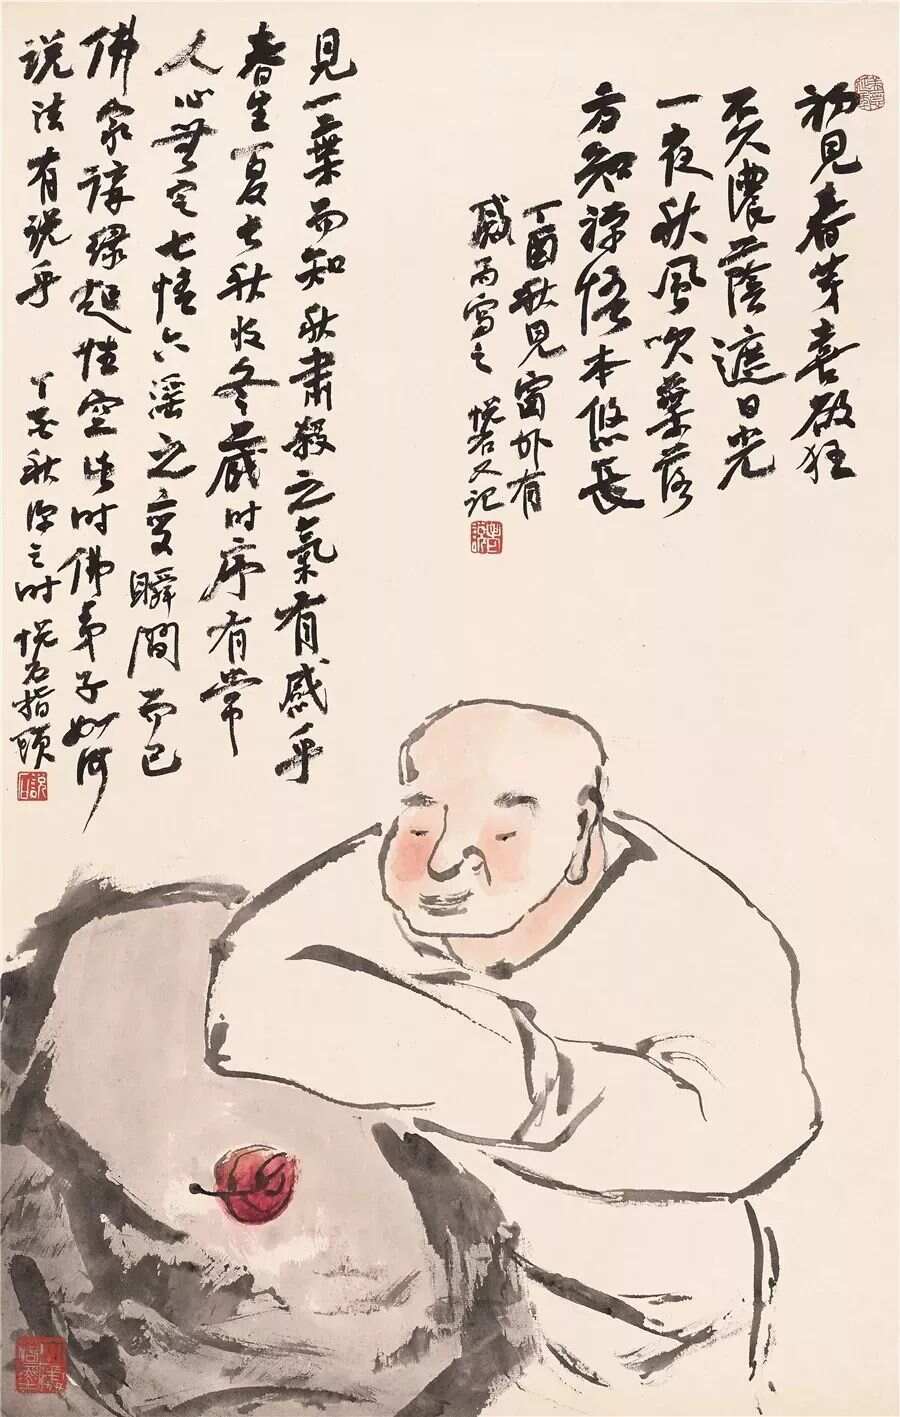 初见春芽喜欲狂
更浓荫遮日光
一夜秋风吹叶落
方知禅悟本悠长
丁酉秋见窗外有
感而写之 悦石又记
見一葉而知秋肃殺之氣有感乎
春生夏長秋收冬藏时序有常
人心無定七情六淫之变瞬間而已
佛家講缘起性空此时佛弟子如何
说法有说乎 丁酉秋深之时 悦石指頭